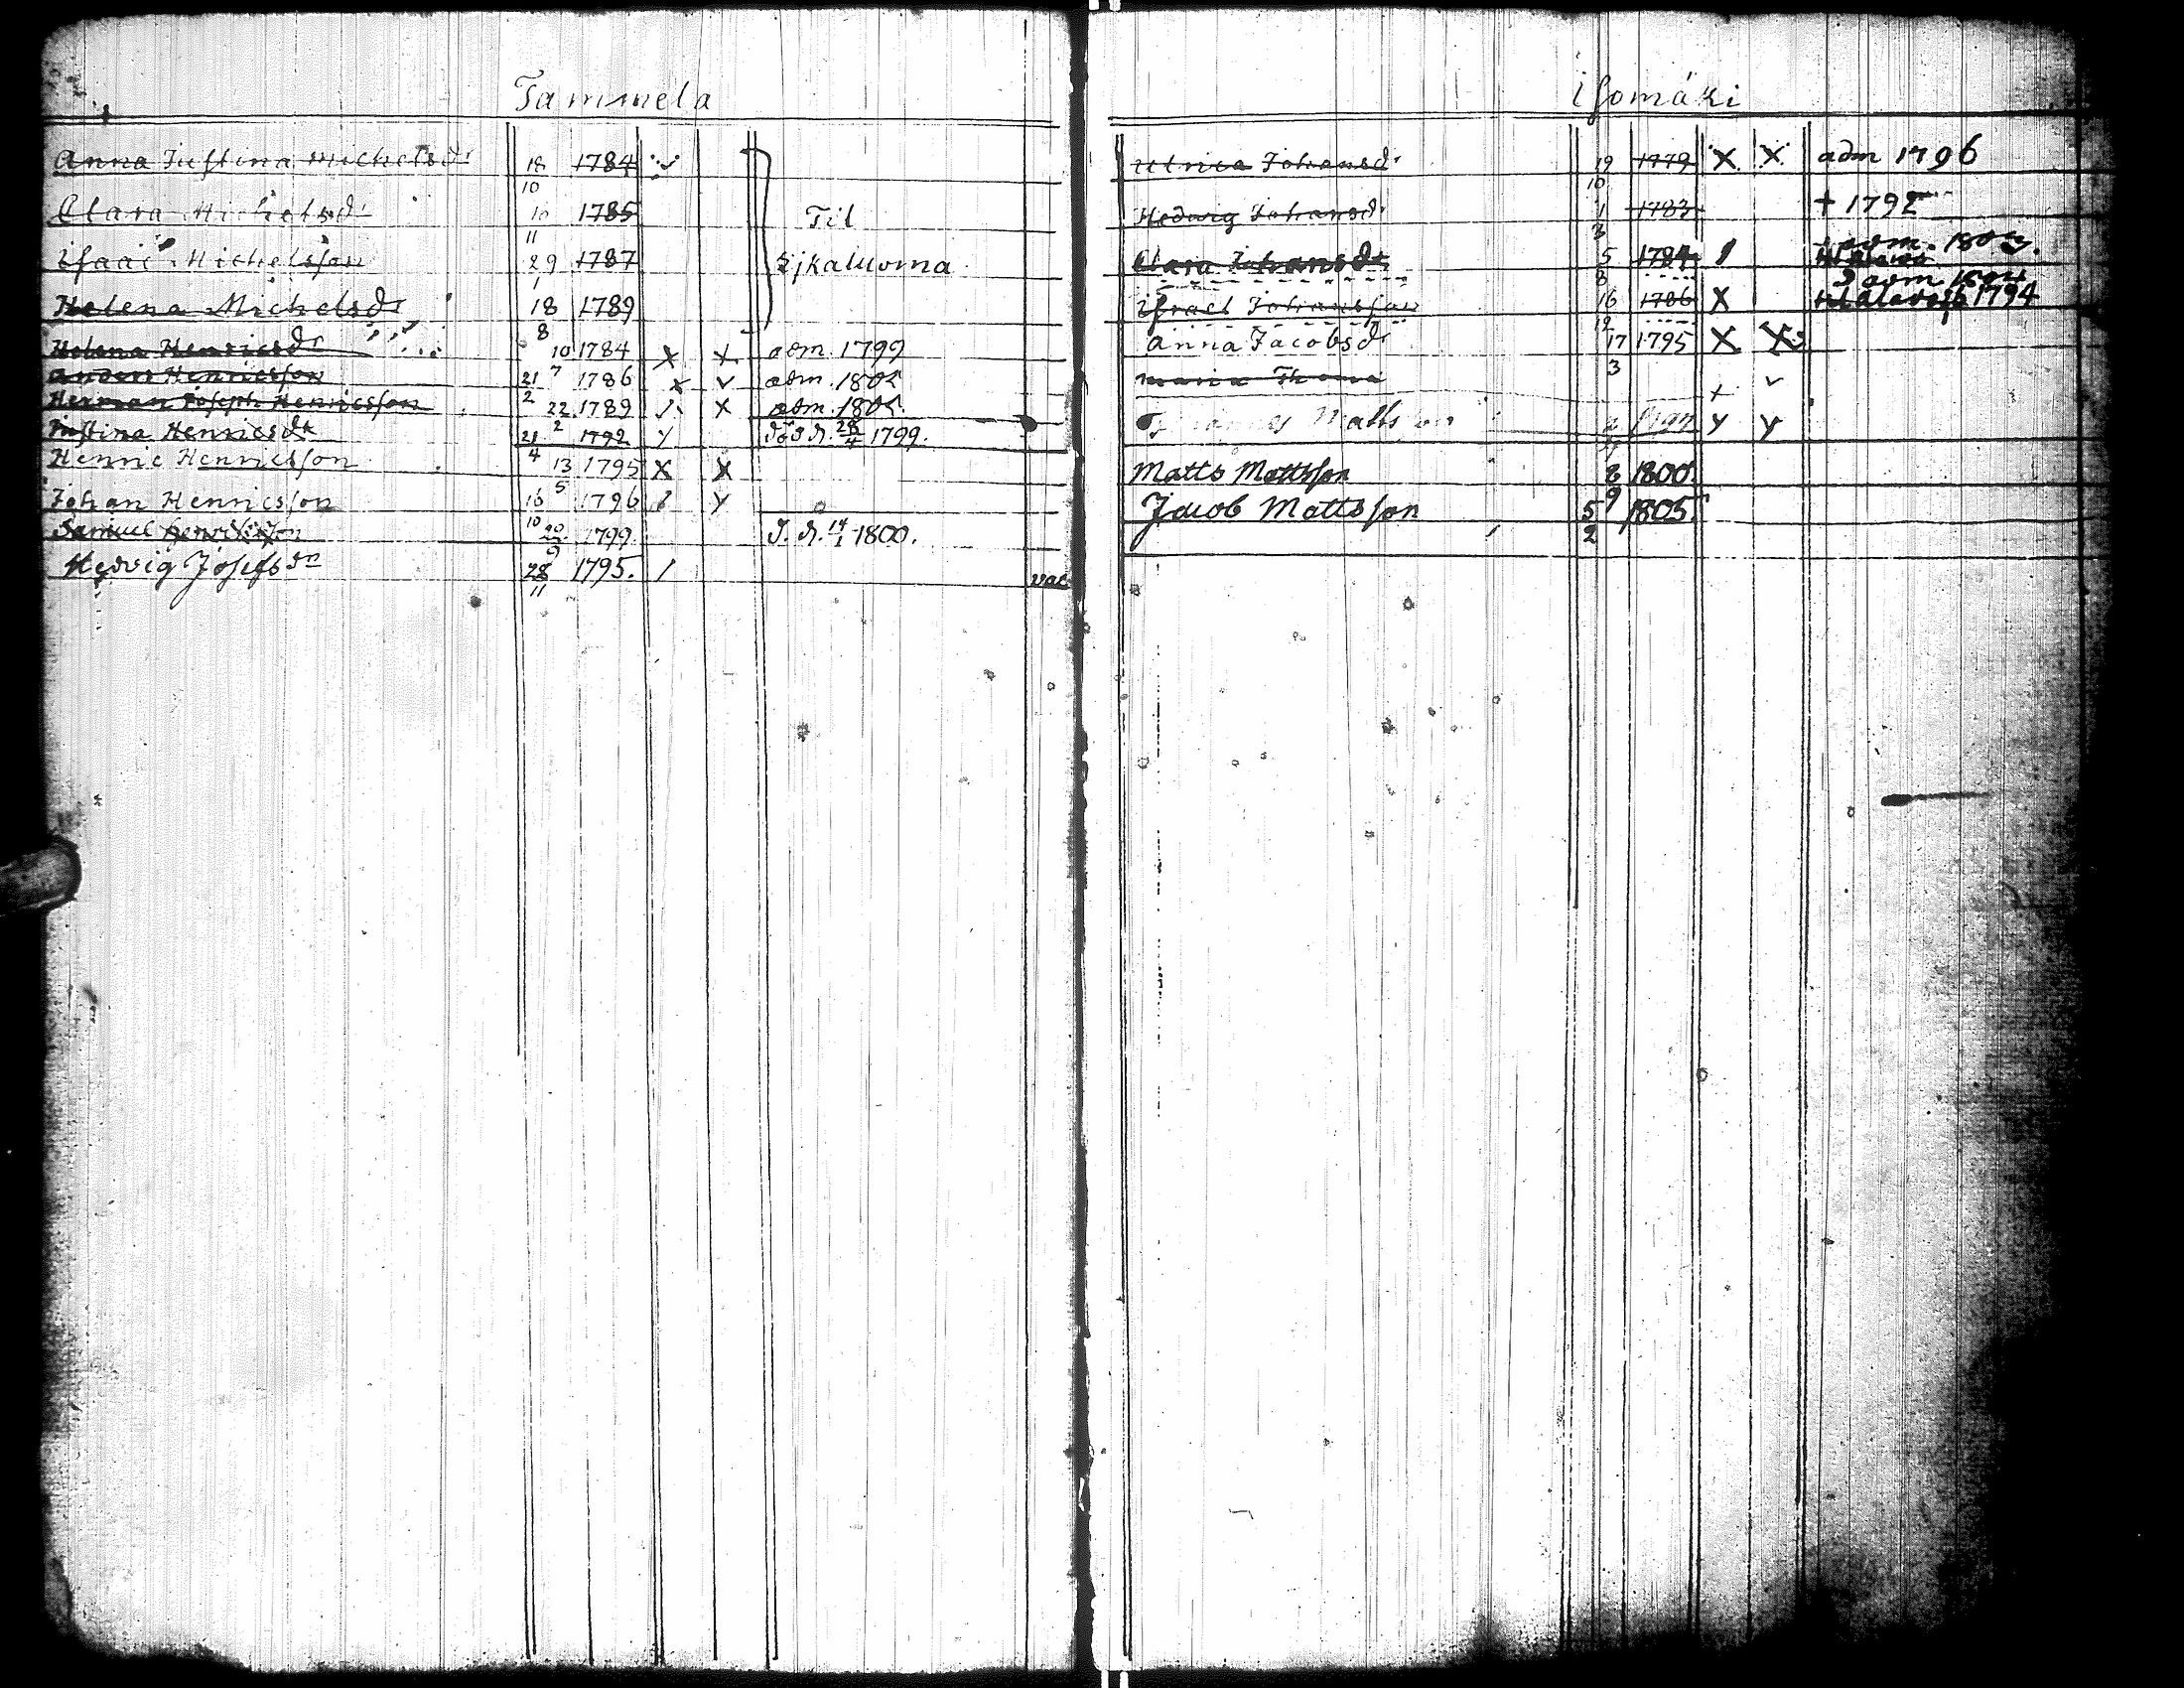 Tammela
Anna Justina Michelsdr 18 10 1784
Clara Michelsdr 16 11 1785 Til
Isaac Michelsson 29 1 1787 Sjkaluoma
Helena Michelsdr 18 8 1789
Helena Henricsdr 10 7 1784 x x adm. 1799
Anders Henricsson 21 2 1786 x v adm. 1802
Herman Joseph Henricsson 22 2 1789 x adm. 1805.
Justina Henricsdr 21 4 1792 y död d. 28/4 1799.
Henric Henricsson 13 5 1795 x x
Johan Henricsson 16 10 1796 y
Samuel Henricsson 20 9 1799 d. d. 14/1 1800.
Hedvig Josefsdr 28 11 1795. / vac
Isomäki
Ulrica Johansdr 19 10 1779 X X adm 1796
Hedwig Johansdr 1 3 1783 + 1792
Clara Johansdr 5 8 1 adm. 180
Israel Johansson 16 12 1786 X adm 1794
Anna Jacobsdr 17 3 1795 X X
Maria Thoma + v
Johannes Mattsson y y
Matts Mattsson 2 9 1800.
Jacob Mattsson 5 2 1805.